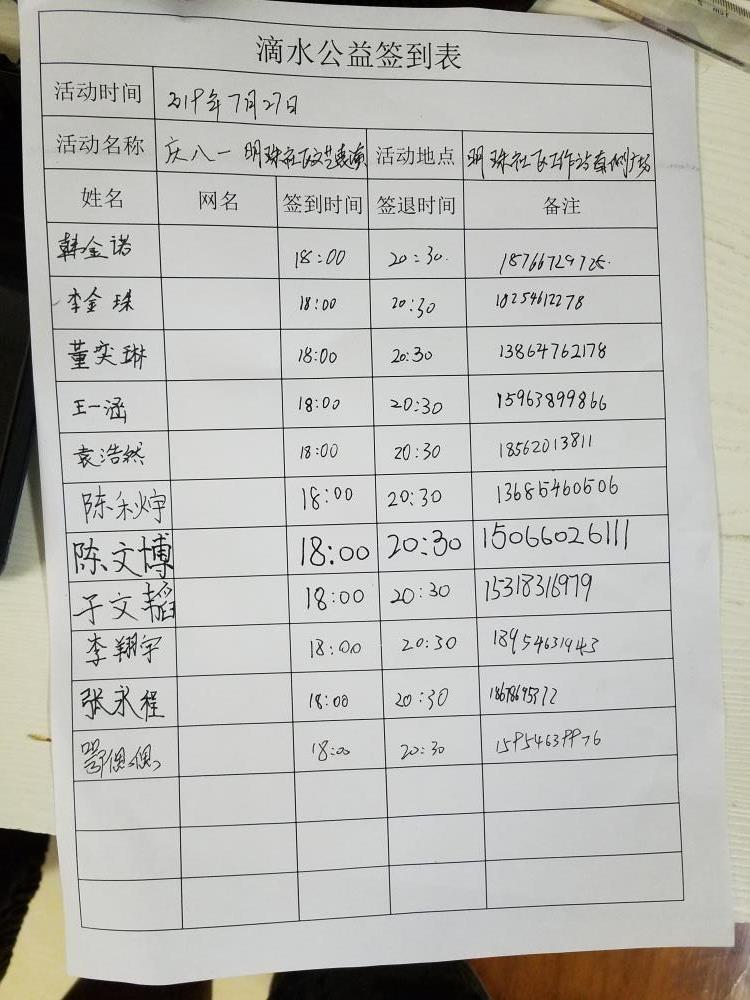 滴水公益签到表
活动时间 2019年7月27日
活动名称 庆八一明珠社区文艺表演 活动地点 明珠社区工作站南侧广场
姓名 网名 签到时间 签退时间 备注
韩金诺 18:00 20:30. 18766729725.
李金珠 18:00 20:30 18254612278
董奕琳 18:00 20:30 13864762178
王一涵 18:00 20:30 15963899866
袁浩然 18:00 20:30 18562013811
18:00 20:30 13685460606
陈文博 18:00 20:30 15066026111
于文韬 18:00 20:30 15318316979
李翔宇 18:00 20:30 18954631943
张永程 18:00 20:30
18:00 20:30